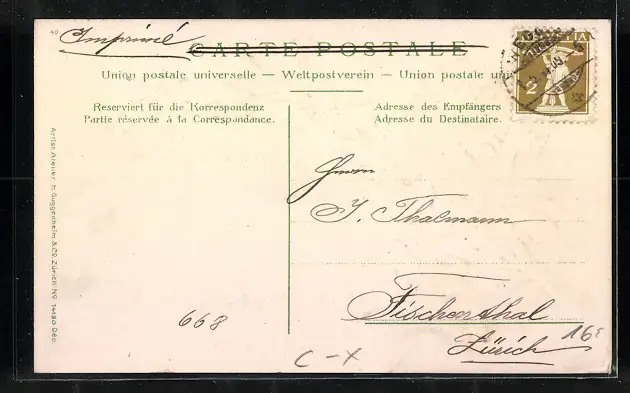 Imprimé
CARTE POSTALE
Union postale universelle — Weltpostverein — Union postale uni
Reserviert für die Korrespondenz
Partie réservée à la Correspondance.
Adresse des Empfängers
Adresse du Destinataire.
2
Herrn
J. Thalmann
Fischenthal
Zürich
668
C-X
Artist. Atelier H. Guggenheim & Co. Zürich No